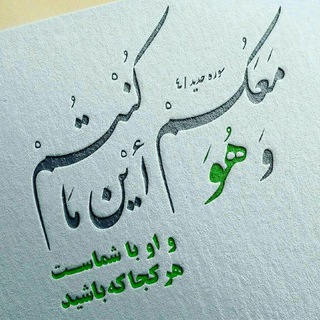 سوره حدید ٤١
وَ هُوَ مَعَکُمْ أَیْنَ مَا کُنْتُمْ
و او با شماست
هر کجا که باشید